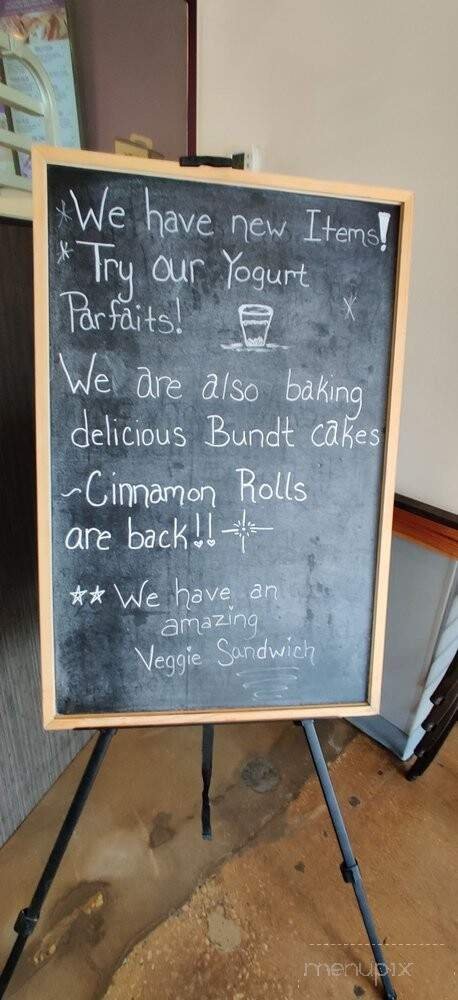 *We have new Items!
*Try our Yogurt
Parfaits! *
We are also baking
delicious Bundt cakes
~Cinnamon Rolls
are back!!
☆☆ We have an
amazing
Veggie Sandwich
menupix